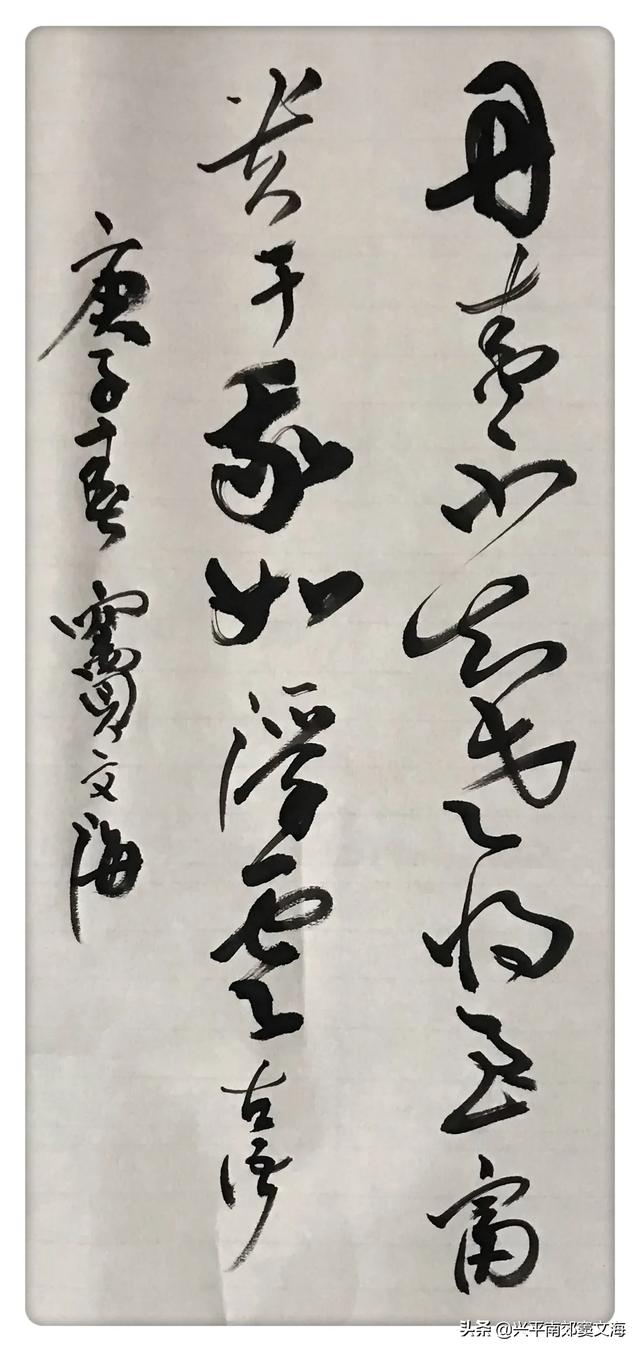 丹青不知老将至富
贵于我如浮云古语
庚子春窦文海
头条 @兴平南郊窦文海